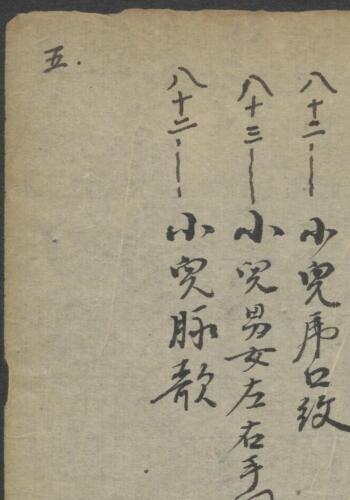 八十二——小兒虎口紋
八十三——小兒男女左右手
八十二——小兒脉歌
五.